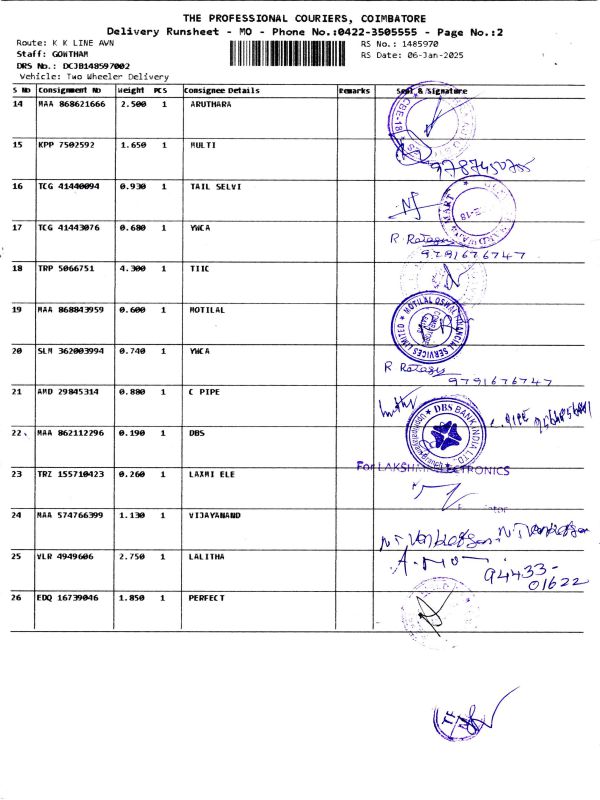 THE PROFESSIONAL COURIERS, COIMBATORE
Delivery Runsheet - MO - Phone No.:0422-3505555 - Page No.:2
Route: K K LINE AWN
RS No.: 1485970
Staff: GOWTHAM
RS Date: 06-Jan-2025
DRS No.: DCJB148597002
Vehicle: Two Wheeler Delivery
S No Consignment No Weight PCS Consignee Details Remarks Seal & Signature
14 MAA 868621666 2.500 1 ARUTHARA
CBE-18
15 KPP 7502592 1.650 1 MULTI
9787450755
16 TCG 41440094 0.930 1 TAIL SELVI
17 TCG 41443076 0.680 1 YWCA
R. 
9791676747
18 TRP 5066751 4.300 1 TIIC
19 MAA 868843959 0.600 1 MOTILAL
MOTILAL OSWAL FINANCIAL SERVICES LIMITED
20 SLM 362003994 0.740 1 YWCA
R 
9791676747
21 AMD 29845314 0.880 1 C PIPE
C. PIPE
22 MAA 862112296 0.190 1 DBS
DBS BANK INDIA LTD.
23 TRZ 155710423 0.260 1 LAXMI ELE
For LAKSHMI ELECTRONICS
24 MAA 574766399 1.130 1 VIJAYANAND
25 VLR 4949606 2.750 1 LALITHA
94433-
01622
26 EDQ 16739046 1.850 1 PERFECT